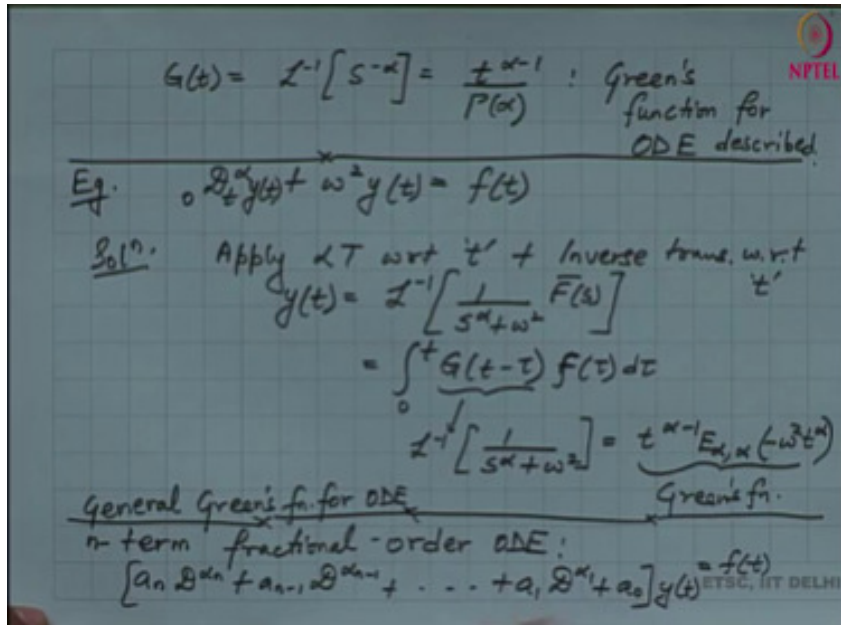 NPTEL
G(t) = L⁻¹[s^-α] = t^(α-1) / Γ(α) : Green's
function for
ODE described
Eg. ₀D_t^α y(t) + ω² y(t) = f(t)
Solⁿ. Apply LT wrt 't' + Inverse trans. w.r.t
't'
y(t) = L⁻¹[ 1/(s^α + ω²) F̄(s) ]
= ∫₀^t G(t-τ) f(τ) dτ
L⁻¹[ 1/(s^α + ω²) ] = t^(α-1) E_α,α (-ω² t^α)
Green's fn.
General Green's fn. for ODE
n-term fractional-order ODE:
[a_n D^α_n + a_n-1 D^α_n-1 + . . . . + a₁ D^α₁ + a₀] y(t) = f(t)
ETSC, IIT DELHI